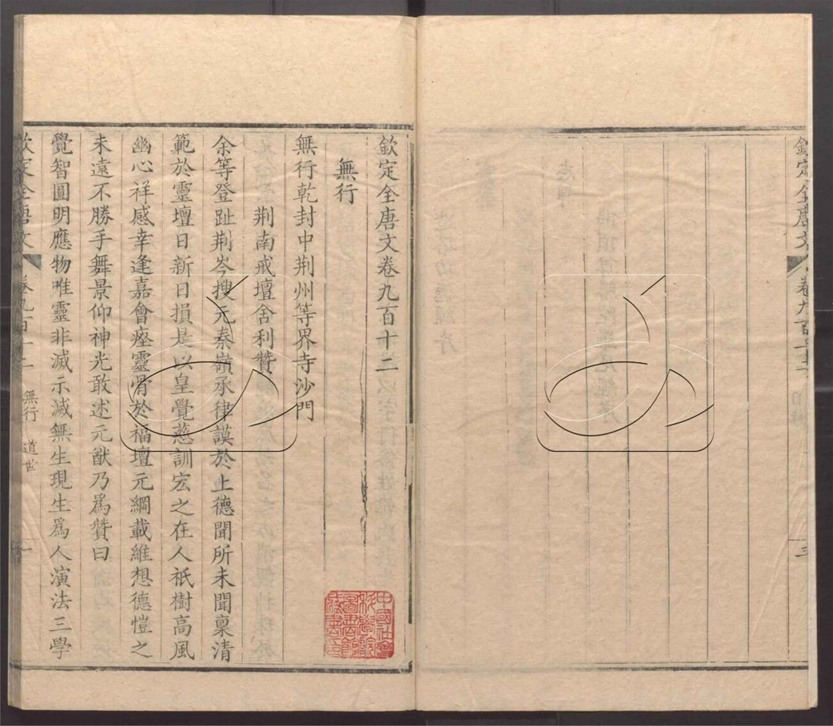 欽定全唐文卷九百十二
無行
無行乾封中荆州等界寺沙門
荆南戒壇舍利贊
余等登趾荆岑搜元秦嶺承律謨於上德聞所未聞稟清
範於靈壇日新日損是以皇覺慈訓宏之在人祇樹高風
幽心祥感幸逢嘉會瘞靈骨於福壇元綱載維想德愷之
未遠不勝手舞景仰神光敢述元猷乃爲贊曰
覺智圓明應物唯靈非滅示滅無生現生爲人演法三學
欽定全唐文
卷九百十二
無行
道世
一